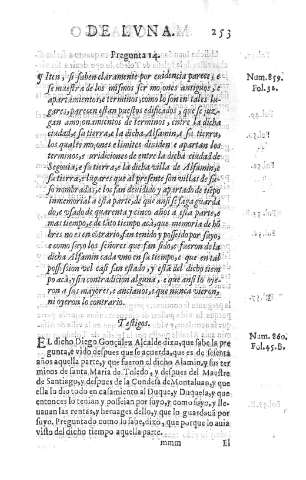 DE LVNA.
253
Pregunta 14.
y Iten, si saben claramente por euidencia parece, e
se muestra de los mismos ser mo ones antiguos, e
apartamientos, e terminos, como lo son en tales lu-
gares, parecen estan puestos edificados, que se juz-
gan amojonamientos de terminos, entre la dicha
ciudad, e su tierra, e la dicha Alfamin, e su tierra,
los quales mo ones e limites diuiden e apartan los
terminos, e juridiciones de entre la dicha ciudad de
Segouia, e su tierra, e la dicha villa de Alfamin, e
su tierra, e lugares que al presente son villas de su-
so nombradas, e los han deuidido y apartado de tiepo
inmemorial a esta parte, de que assi se aya guarda
do, e vsado de quarenta y cinco años a esta parte, e
mas tiempo, e de tanto tiempo acà, que memoria de hõ-
bres no es en contrario, han tenido y posseido por suyo,
e como suyo los señores que han sido, e fueron de la
dicha Alfamin cada vno en su tiempo, e que en tal
possession vel casi han estado, y està del dicho tiem
po acà, y sin contradicion alguna, e que ansi lo oye-
ron a sus mayores, e ancianos, e que nunca vieron,
ni oyeron lo contrario.
Num. 859.
Fol. 32.
Testigos.
EL dicho Diego Gonçalez Alcalde dixo, que sabe la pre
gunta, e vido despues que se acuerda, que es de sesenta
años aquella parte, y que fueron al dicho Alamin, y sus ter
minos de santa Maria de Toledo, y despues del Maestre
de Santiago, y despues de la Condesa de Montaluan, y que
ella lo dio todo en casamiento al Duque, y Duquesa, y que
entonces lo tenian y posseian por suyo, y como suyo, y lle-
uauan las rentas, y heruages dello, y que lo guardauã por
suyo. Preguntado como lo sabe, dixo, que porque lo auia
visto del dicho tiempo aquella parte.
Num. 860.
Fol. 45. B.
mmm
El